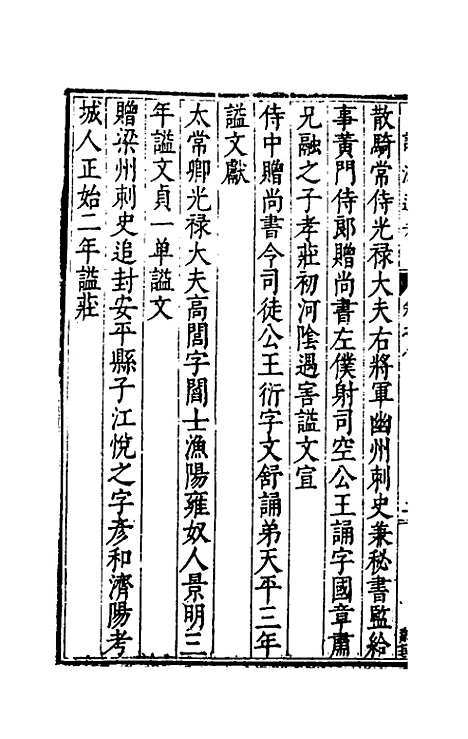 散騎常侍光禄大夫右將軍幽州刺史兼秘書監給
事黄門侍郎贈尚書左僕射司空公王誦字國章肅
兄融之子孝莊初河陰遇害謚文宣
侍中贈尚書令司徒公王衍字文舒誦弟天平三年
謚文獻
太常卿光禄大夫高閭字閻士漁陽雍奴人景明三
年謚文貞一单謚文
贈梁州刺史追封安平縣子江悅之字彦和濟陽考
城人正始二年謚莊